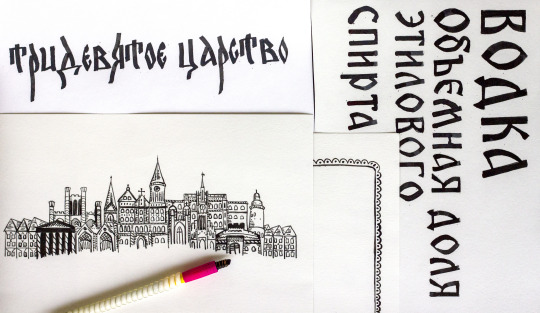 тридевятое царство
ВОДКА
Объемная доля
этилового
спирта